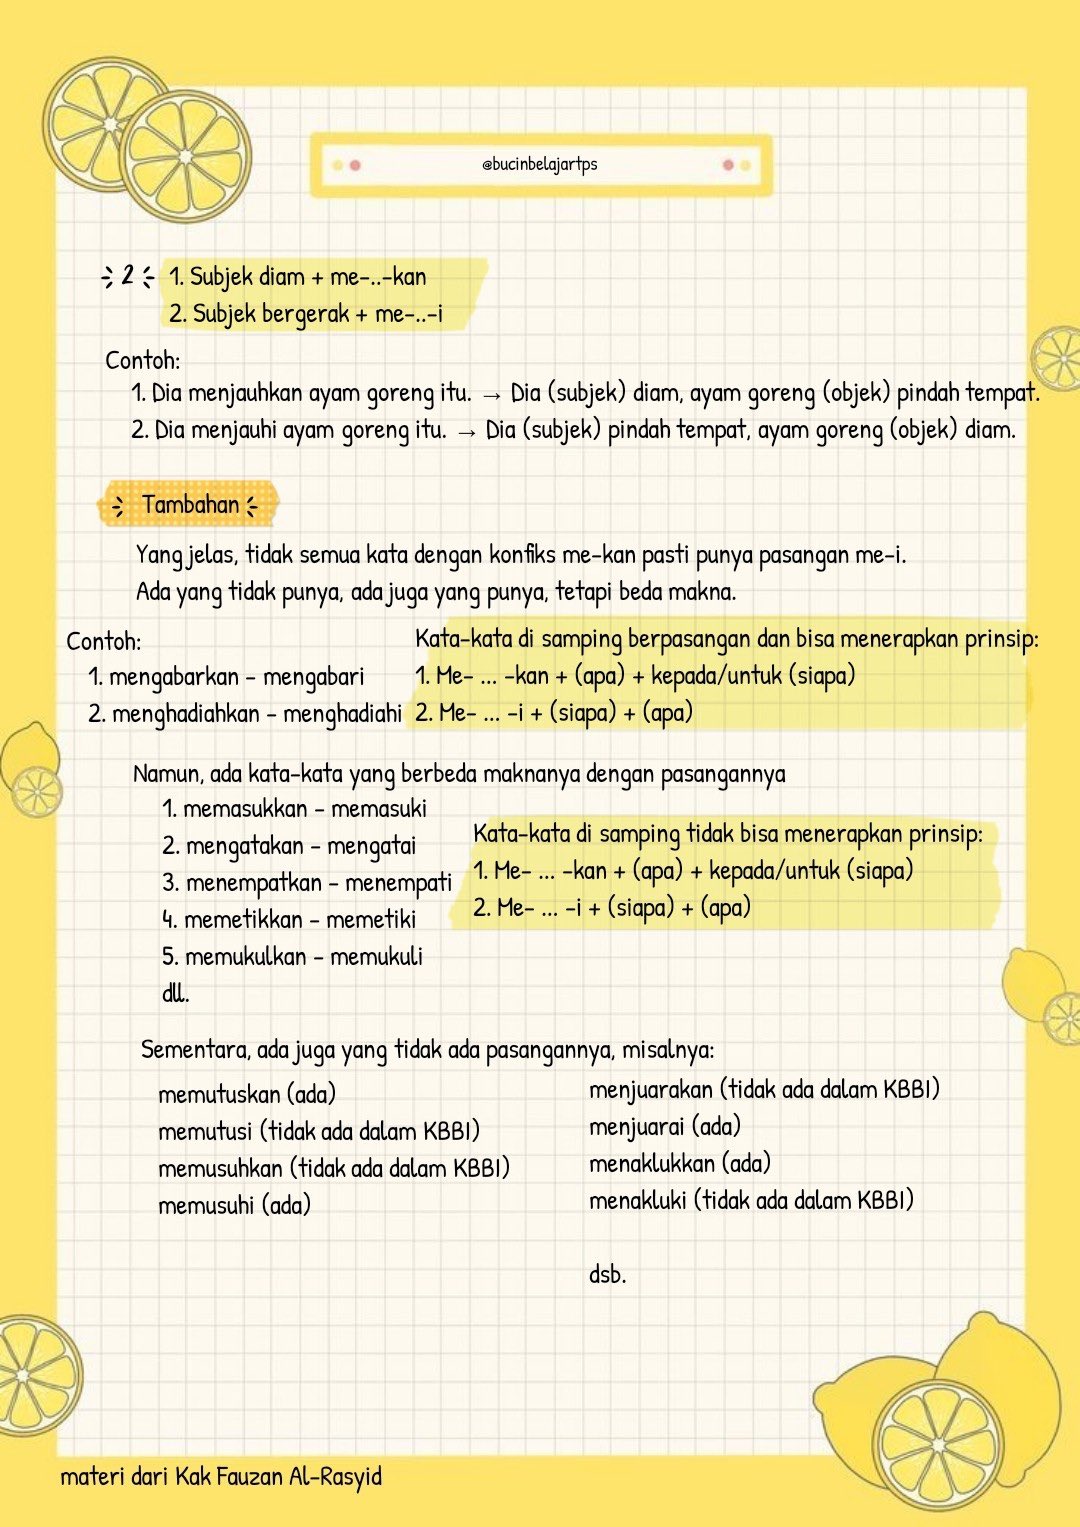 @bucinbelajartps
2
1. Subjek diam + me-..-kan
2. Subjek bergerak + me-..-i
Contoh:
1. Dia menjauhkan ayam goreng itu. → Dia (subjek) diam, ayam goreng (objek) pindah tempat.
2. Dia menjauhi ayam goreng itu. → Dia (subjek) pindah tempat, ayam goreng (objek) diam.
Tambahan
Yang jelas, tidak semua kata dengan konfiks me-kan pasti punya pasangan me-i.
Ada yang tidak punya, ada juga yang punya, tetapi beda makna.
Contoh:
1. mengabarkan - mengabari
2. menghadiahkan - menghadiahi
Kata-kata di samping berpasangan dan bisa menerapkan prinsip:
1. Me- ... -kan + (apa) + kepada/untuk (siapa)
2. Me- ... -i + (siapa) + (apa)
Namun, ada kata-kata yang berbeda maknanya dengan pasangannya
1. memasukkan - memasuki
2. mengatakan - mengatai
3. menempatkan - menempati
4. memetikkan - memetiki
5. memukulkan - memukuli
dll.
Kata-kata di samping tidak bisa menerapkan prinsip:
1. Me- ... -kan + (apa) + kepada/untuk (siapa)
2. Me- ... -i + (siapa) + (apa)
Sementara, ada juga yang tidak ada pasangannya, misalnya:
memutuskan (ada)
memutusi (tidak ada dalam KBBI)
memusuhkan (tidak ada dalam KBBI)
memusuhi (ada)
menjuarakan (tidak ada dalam KBBI)
menjuarai (ada)
menaklukkan (ada)
menakluki (tidak ada dalam KBBI)
dsb.
materi dari Kak Fauzan Al-Rasyid